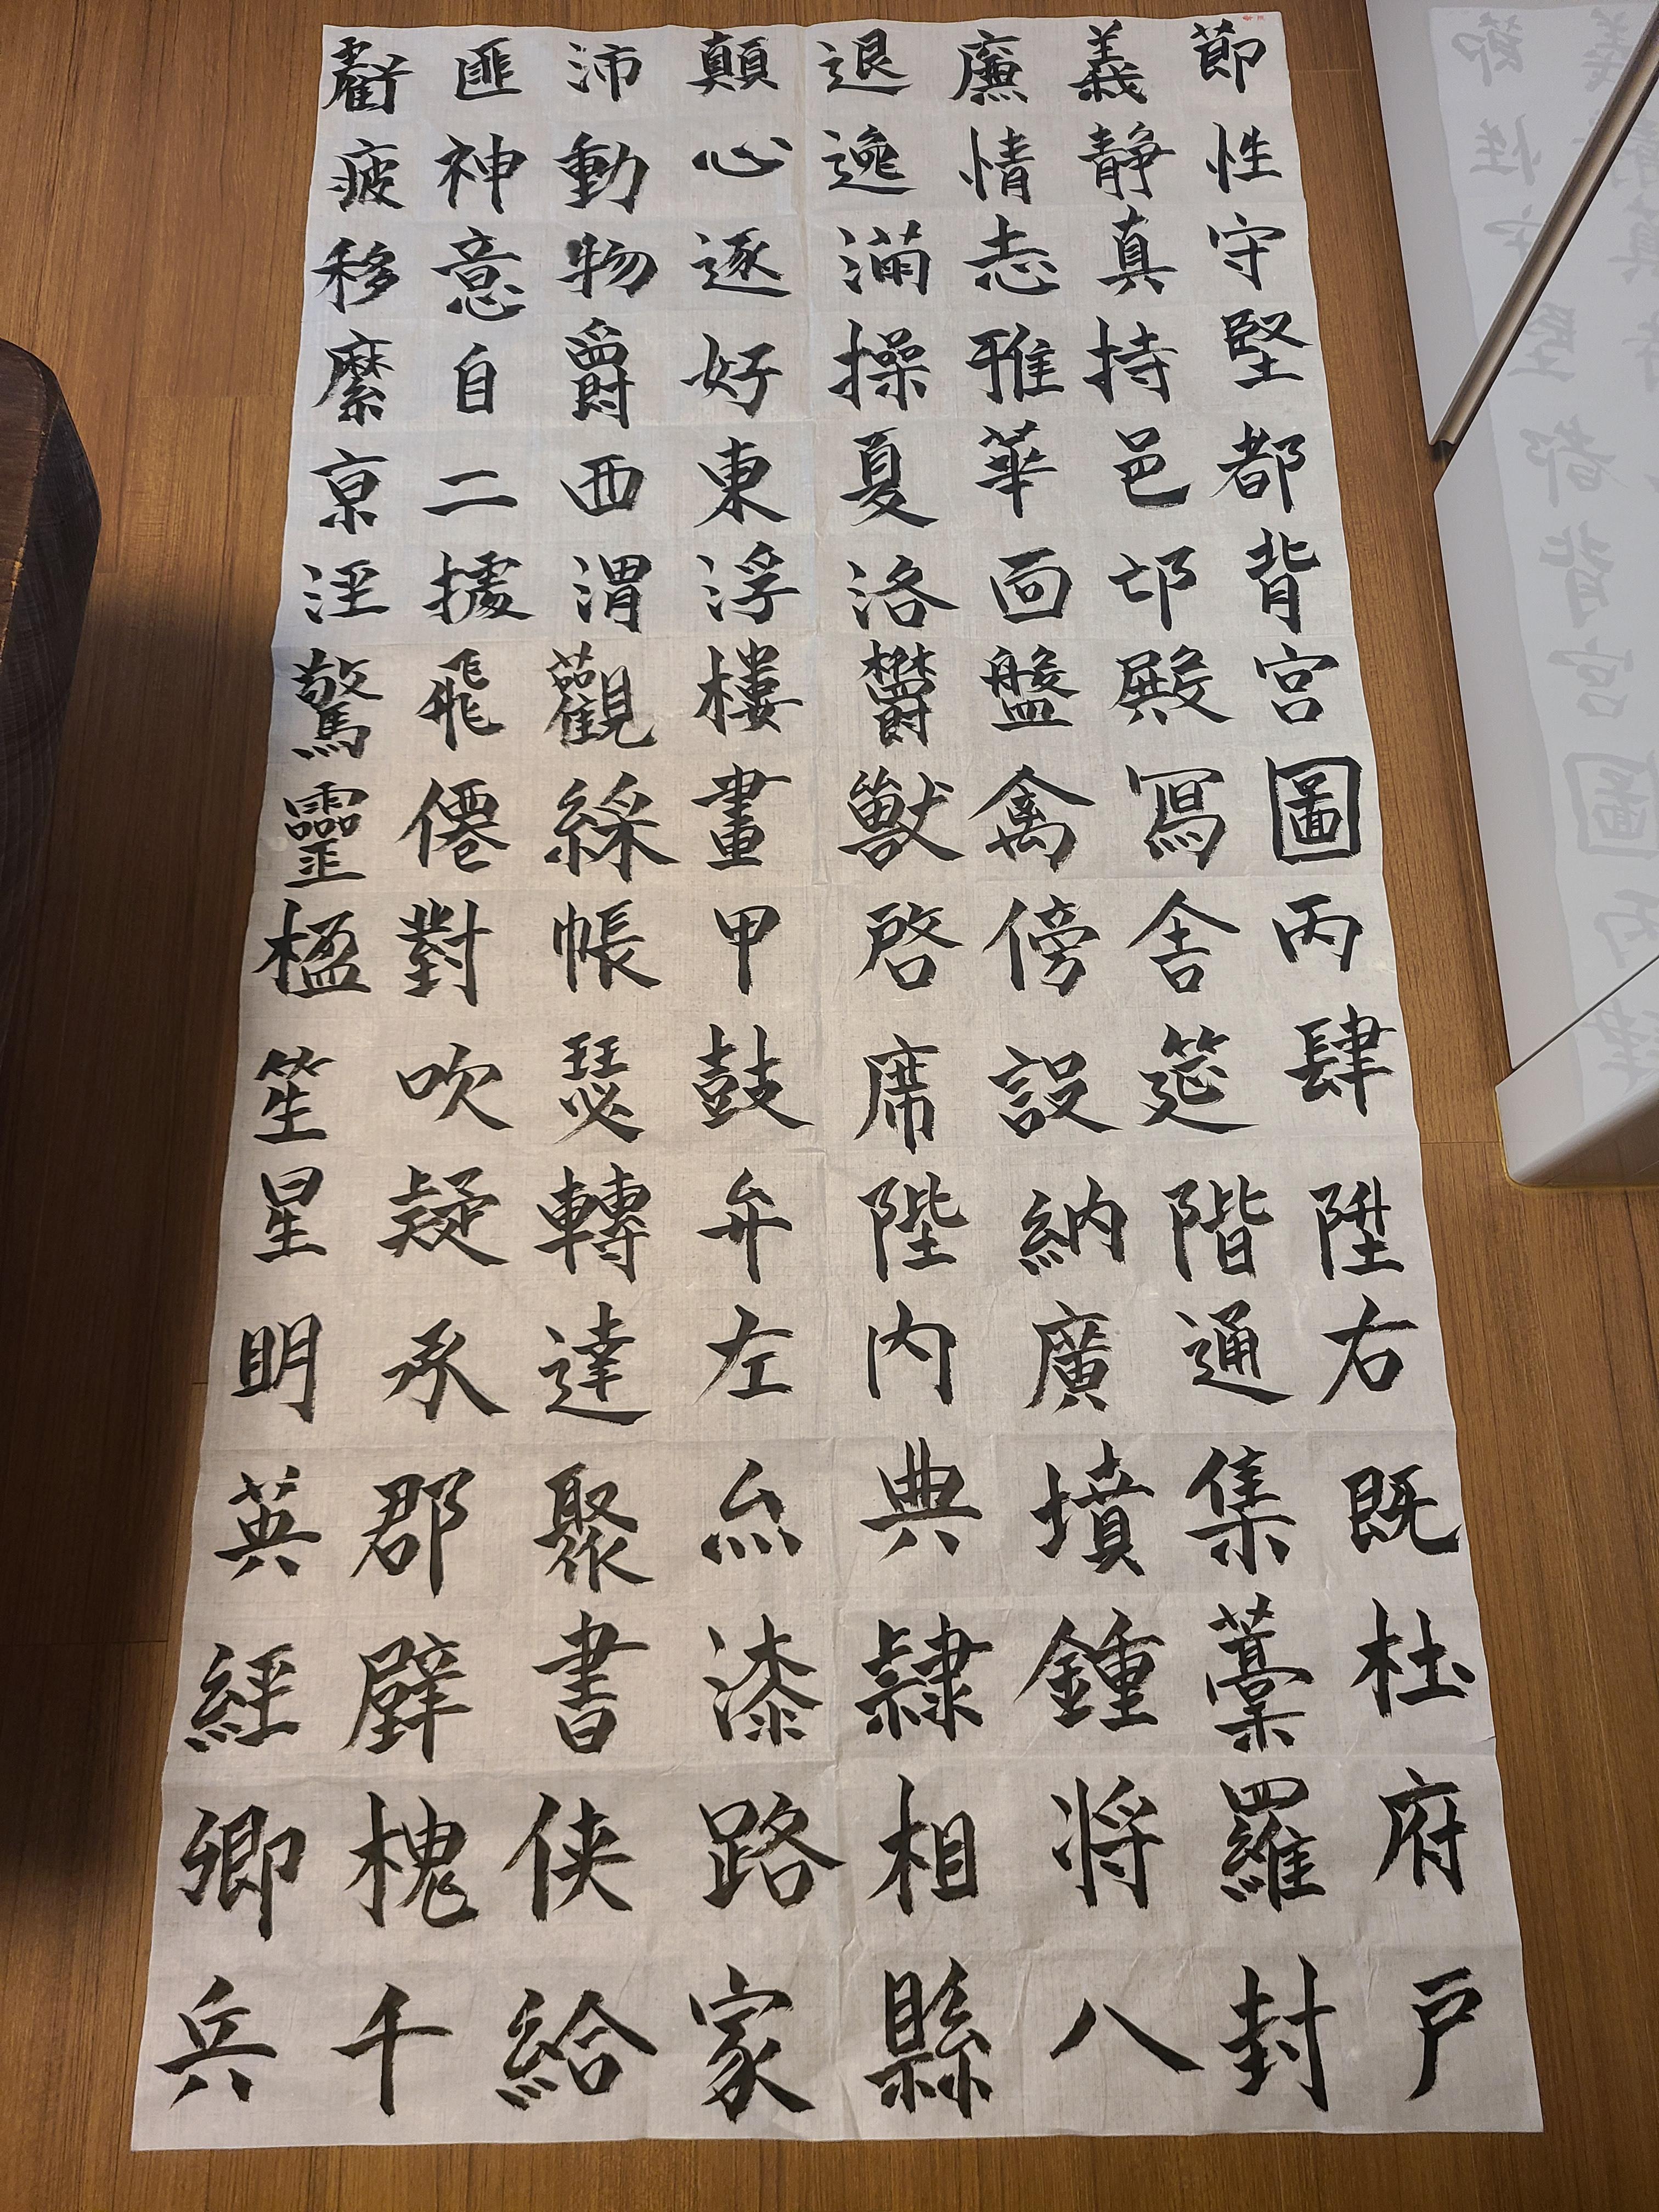 節義廉退顛沛匪虧
性静情逸心動神疲
守真志滿逐物意移
堅持雅操好爵自縻
都邑華夏東西二京
背邙面洛浮渭據涇
宮殿盤鬱樓觀飛驚
圖寫禽獸畫綵僊靈
丙舍傍啓甲帳對楹
肆筵設席鼓瑟吹笙
陞階納陛弁轉疑星
右通廣內左達承明
既集墳典亦聚郡英
杜藁鍾隸漆書壁經
府羅将相路侠槐卿
戶封八縣家給千兵